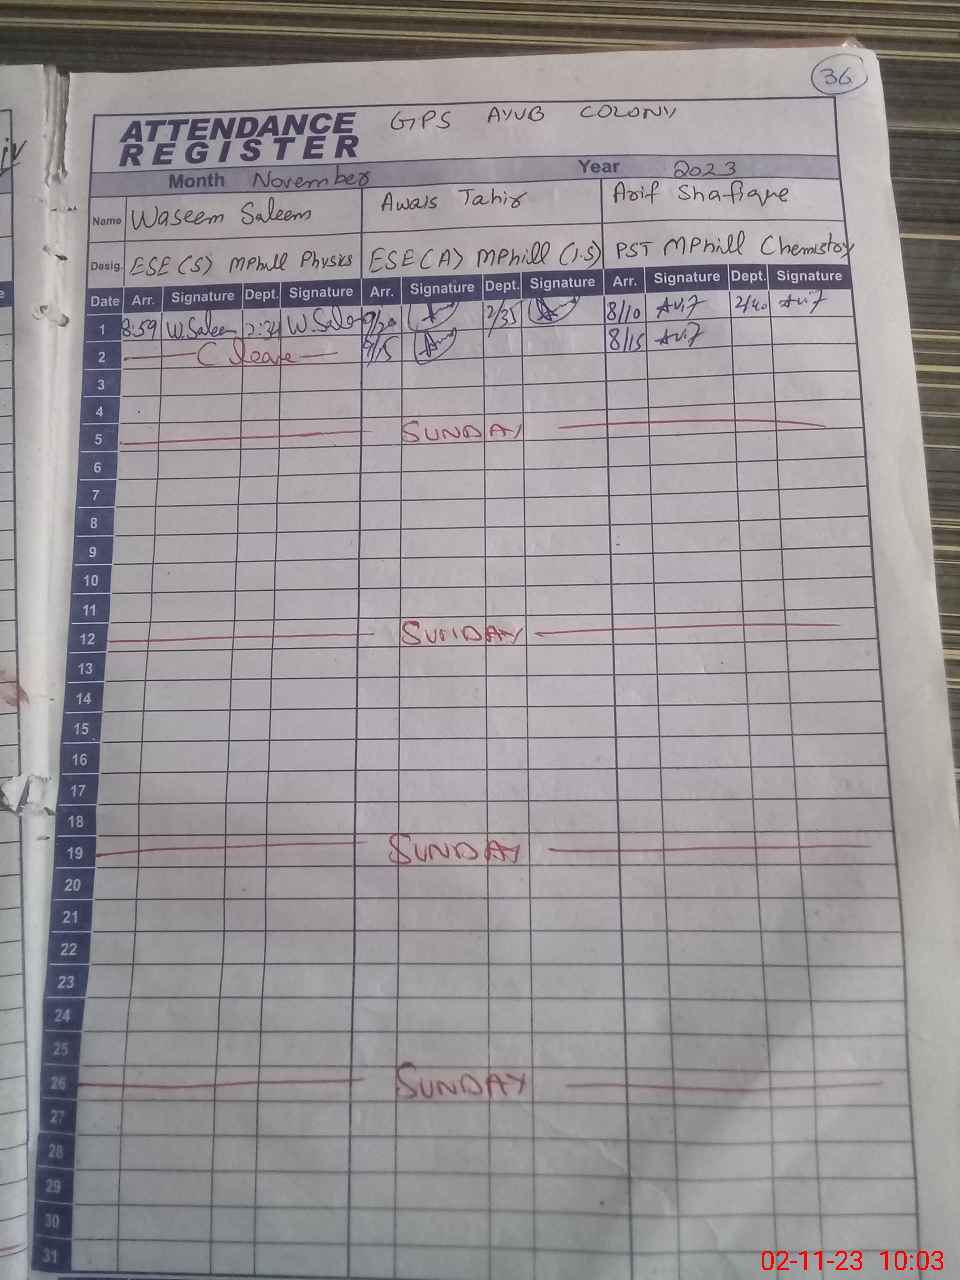 36
ATTENDANCE REGISTER GPS AYUB COLONY
Month November Year 2023
Name Waseem Saleem Awais Tahir Arif Shafique
Desig. ESE(S) MPhill Physics ESE(A) MPhill (I.S) PST MPhill Chemistry
Date Arr. Signature Dept. Signature Arr. Signature Dept. Signature Arr. Signature Dept. Signature
1 8:59 W.Saleem 2:34 W.Sale 2/35 8/10 Arif 2/40 Arif
2 C leave 9/15 8/15 Arif
3
4
5 SUNDAY
6
7
8
9
10
11
12 SUNDAY
13
14
15
16
17
18
19 SUNDAY
20
21
22
23
24
25
26 SUNDAY
27
28
29
30
31
02-11-23 10:03